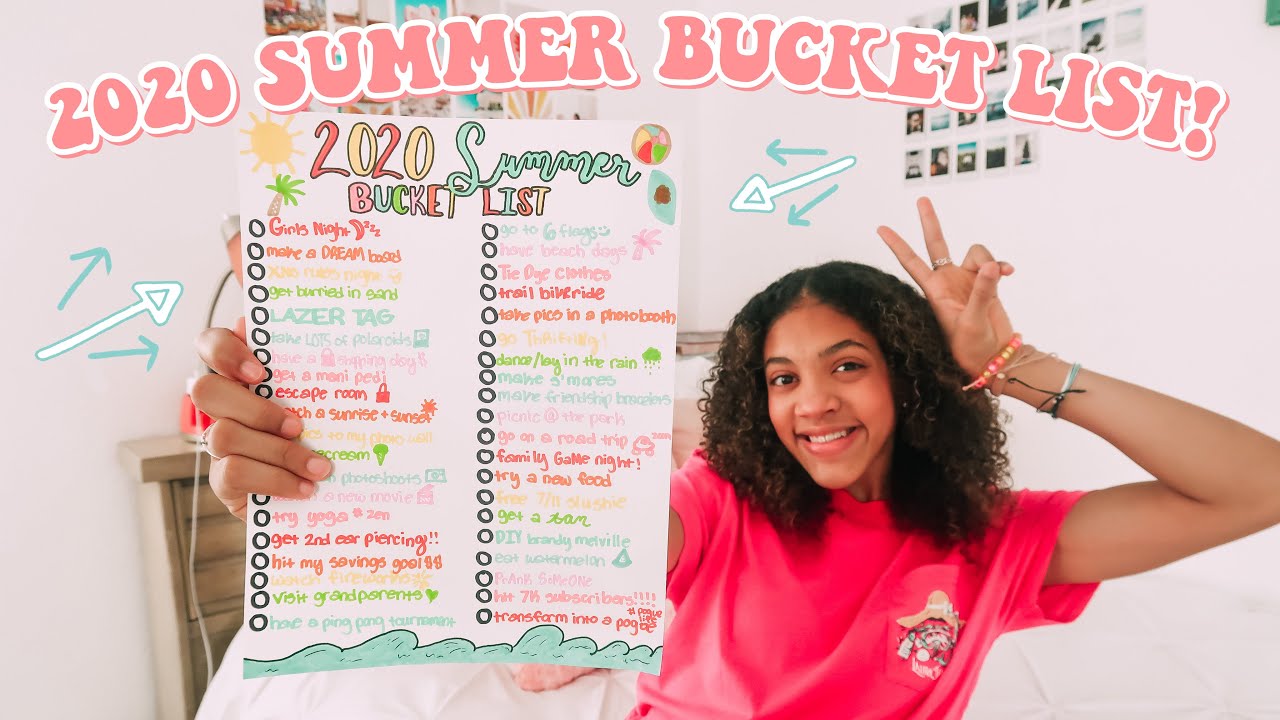 2020 SUMMER BUCKET LIST!
2020 Summer
BUCKET LIST
Girls Night zzz
make a DREAM board
night
get burried in sand
LAZER TAG
take LOTS of polaroids
have a shopping day!!
get a mani pedi
escape room
a sunrise + sunset
pics to my photo wall
photoshoots
a new movie
try yoga #zen
get 2nd ear piercing!!
hit my savings goal $$
watch fireworks
visit grandparents
have a ping pong tournamint
go to 6 flags
have beach days
Tie Dye clothes
trail bikeride
take pics in a photobooth
go Thrifting!
dance/lay in the rain
make s'mores
make friendship bracelets
picnic @ the park
go on a road trip zoom
family Game night!
try a new food
free 7/11 slushie
get a tan
DIY brandy melville
eat watermelon
PrAnK SoMeONe
hit 7k subscribers!!!!
transform into a pogue
# pogue life